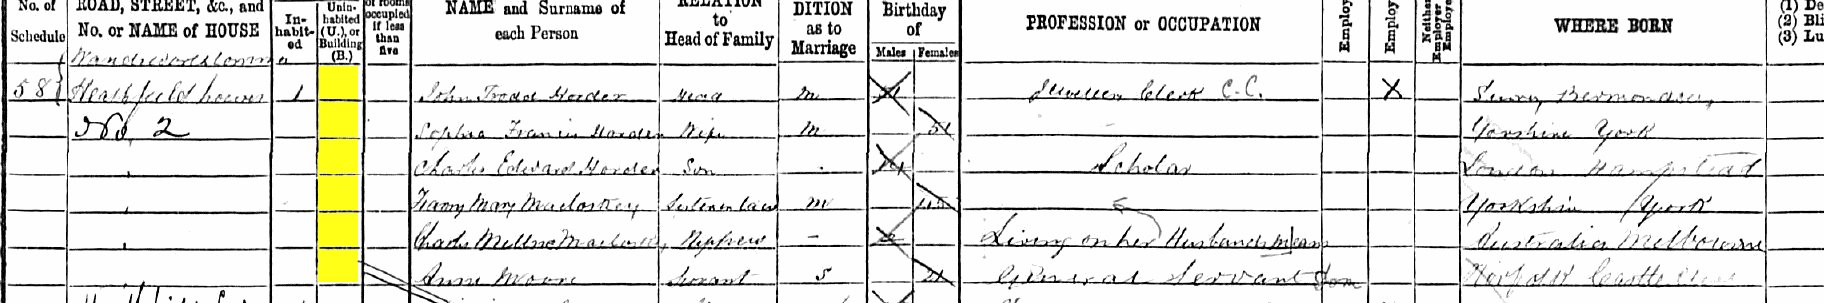 No. of Schedule ROAD, STREET, &c., and No. or NAME of HOUSE In-habit-ed Unin-habited (U.), or Building (B.) of rooms occupied if less than five NAME and Surname of each Person RELATION to Head of Family DITION as to Marriage Birthday of Males Females PROFESSION or OCCUPATION Employ Employ Neither Employer Employe WHERE BORN (1) De (2) Bli (3) Lu
58 Heathfield 1 John Trodd Horder Head M Clerk C.C. X Surrey Bermondsey
No 2 Sophia Francis Horder Wife M 51 Yorshire York
Charles Edward Horder Son 14 Scholar London Hampstead
Fanny Mary Sister in law M 45 Yorkshire York
Charles Nephew - 2 Living on her Husbands Means Australia Melbourne
Annie Moore Servant S 21 General Servant Dom Norfolk Castle